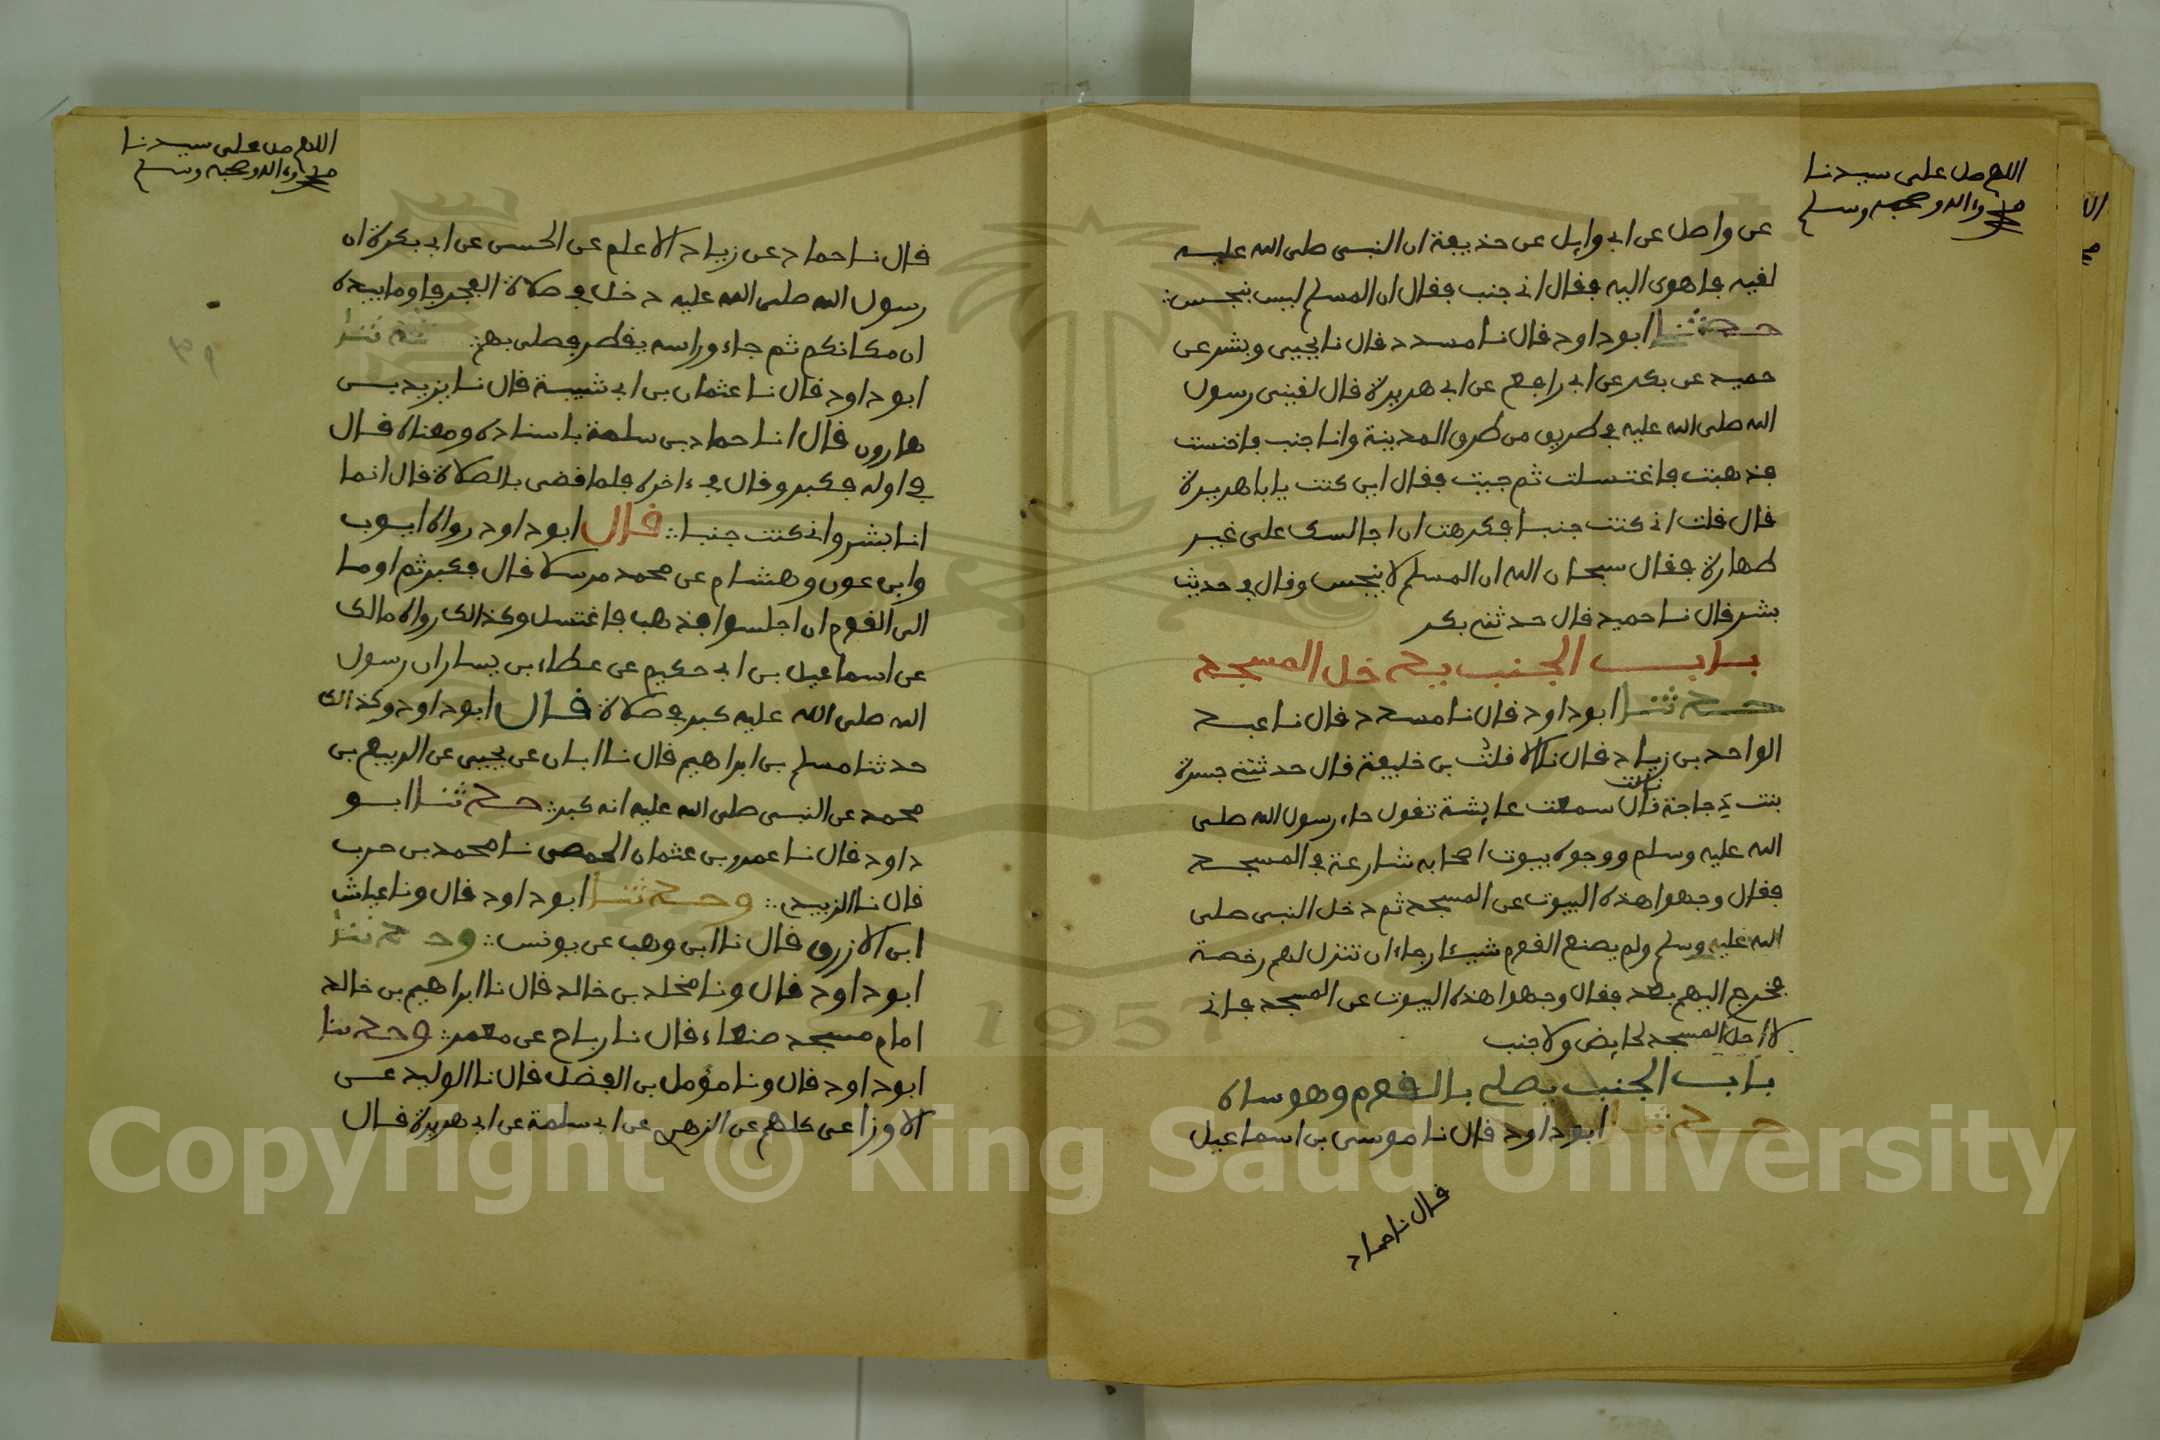 اللهم صل على سيدنا
محمد وءاله وصحبه وسلم
عن واصل عن ابي وايل عن حذيفة ان النبي صلى الله عليه
لقيه فاهوى اليه فقال اني جنب فقال ان المسلم ليس بنجس
حدثنا ابو داود قال نا مسدد قال نا يحيى وبشر عن
حميد عن بكر عن ابي رافع عن ابي هريرة قال لقيني رسول
الله صلى الله عليه في طريق من طرق المدينة وانا جنب فاختنست
فذهبت فاغتسلت ثم جيت فقال اين كنت يا با هريرة
قال قلت اني كنت جنبا فكرهت ان اجالسك على غير
طهارة فقال سبحان الله ان المسلم لا ينجس وقال في حديث
بشر قال نا حميد قال حدثني بكر
باب الجنب يدخل المسجد
حدثنا ابو داود قال نا مسدد قال نا عبد
الواحد بن زياد قال نا الافلت بن خليفة قال حدثتني جسرة
بنت دجاجة قالت سمعت عايشة تقول جاء رسول الله صلى
الله عليه وسلم ووجوه بيوت اصحابه شارعة في المسجد
فقال وجهوا هذه البيوت عن المسجد ثم دخل النبي صلى
الله عليه وسلم ولم يصنع القوم شيئا رجاء ان تنزل لهم رخصة
فخرج اليهم بعد فقال وجهوا هذه البيوت عن المسجد فاني
لا احل المسجد لحايض ولا جنب
باب الجنب يصلي بالقوم وهو ساه
حدثنا ابو داود قال نا موسى بن اسماعيل
قال نا حماد
اللهم صل على سيدنا
محمد وءاله وصحبه وسلم
قال نا حماد عن زياد الاعلم عن الحسن عن ابي بكرة ان
رسول الله صلى الله عليه دخل في صلاة الفجر فاوما بيده
ان مكانكم ثم جاء وراسه يقطر فصلى بهم حدثنا
ابو داود قال نا عثمان بن ابي شيبة قال نا يزيد بن
هارون قال انا حماد بن سلمة باسناده ومعناه قال
في اوله فكبر وقال في ءاخره فلما قضى بالصلاة قال انما
انا بشر واني كنت جنبا قال ابو داود رواه ايوب
وابن عون وهشام عن محمد مرسلا قال فكبر ثم اوما
الى القوم ان اجلسوا فذهب فاغتسل وكذالك رواه مالك
عن اسماعيل بن ابي حكيم عن عطاء بن يسار ان رسول
الله صلى الله عليه كبر في صلاة قال ابو داود وكذالك
حدثنا مسلم بن ابراهيم قال نا ابان عن يحيى عن الربيع بن
محمد عن النبي صلى الله عليه انه كبر حدثنا ابو
داود قال نا عمرو بن عثمان الحمصي نا محمد بن حرب
قال نا الزبيدي وحدثنا ابو داود قال ونا عياش
ابن الازرق قال نا ابن وهب عن يونس وحدثنا
ابو داود قال ونا مخلد بن خالد قال نا ابراهيم بن خالد
امام مسجد صنعاء قال نا رباح عن معمر وحدثنا
ابو داود قال ونا مؤمل بن الفضل قال نا الوليد عن
الاوزاعي كلهم عن الزهري عن ابي سلمة عن ابي هريرة قال
1957
Copyright © King Saud University